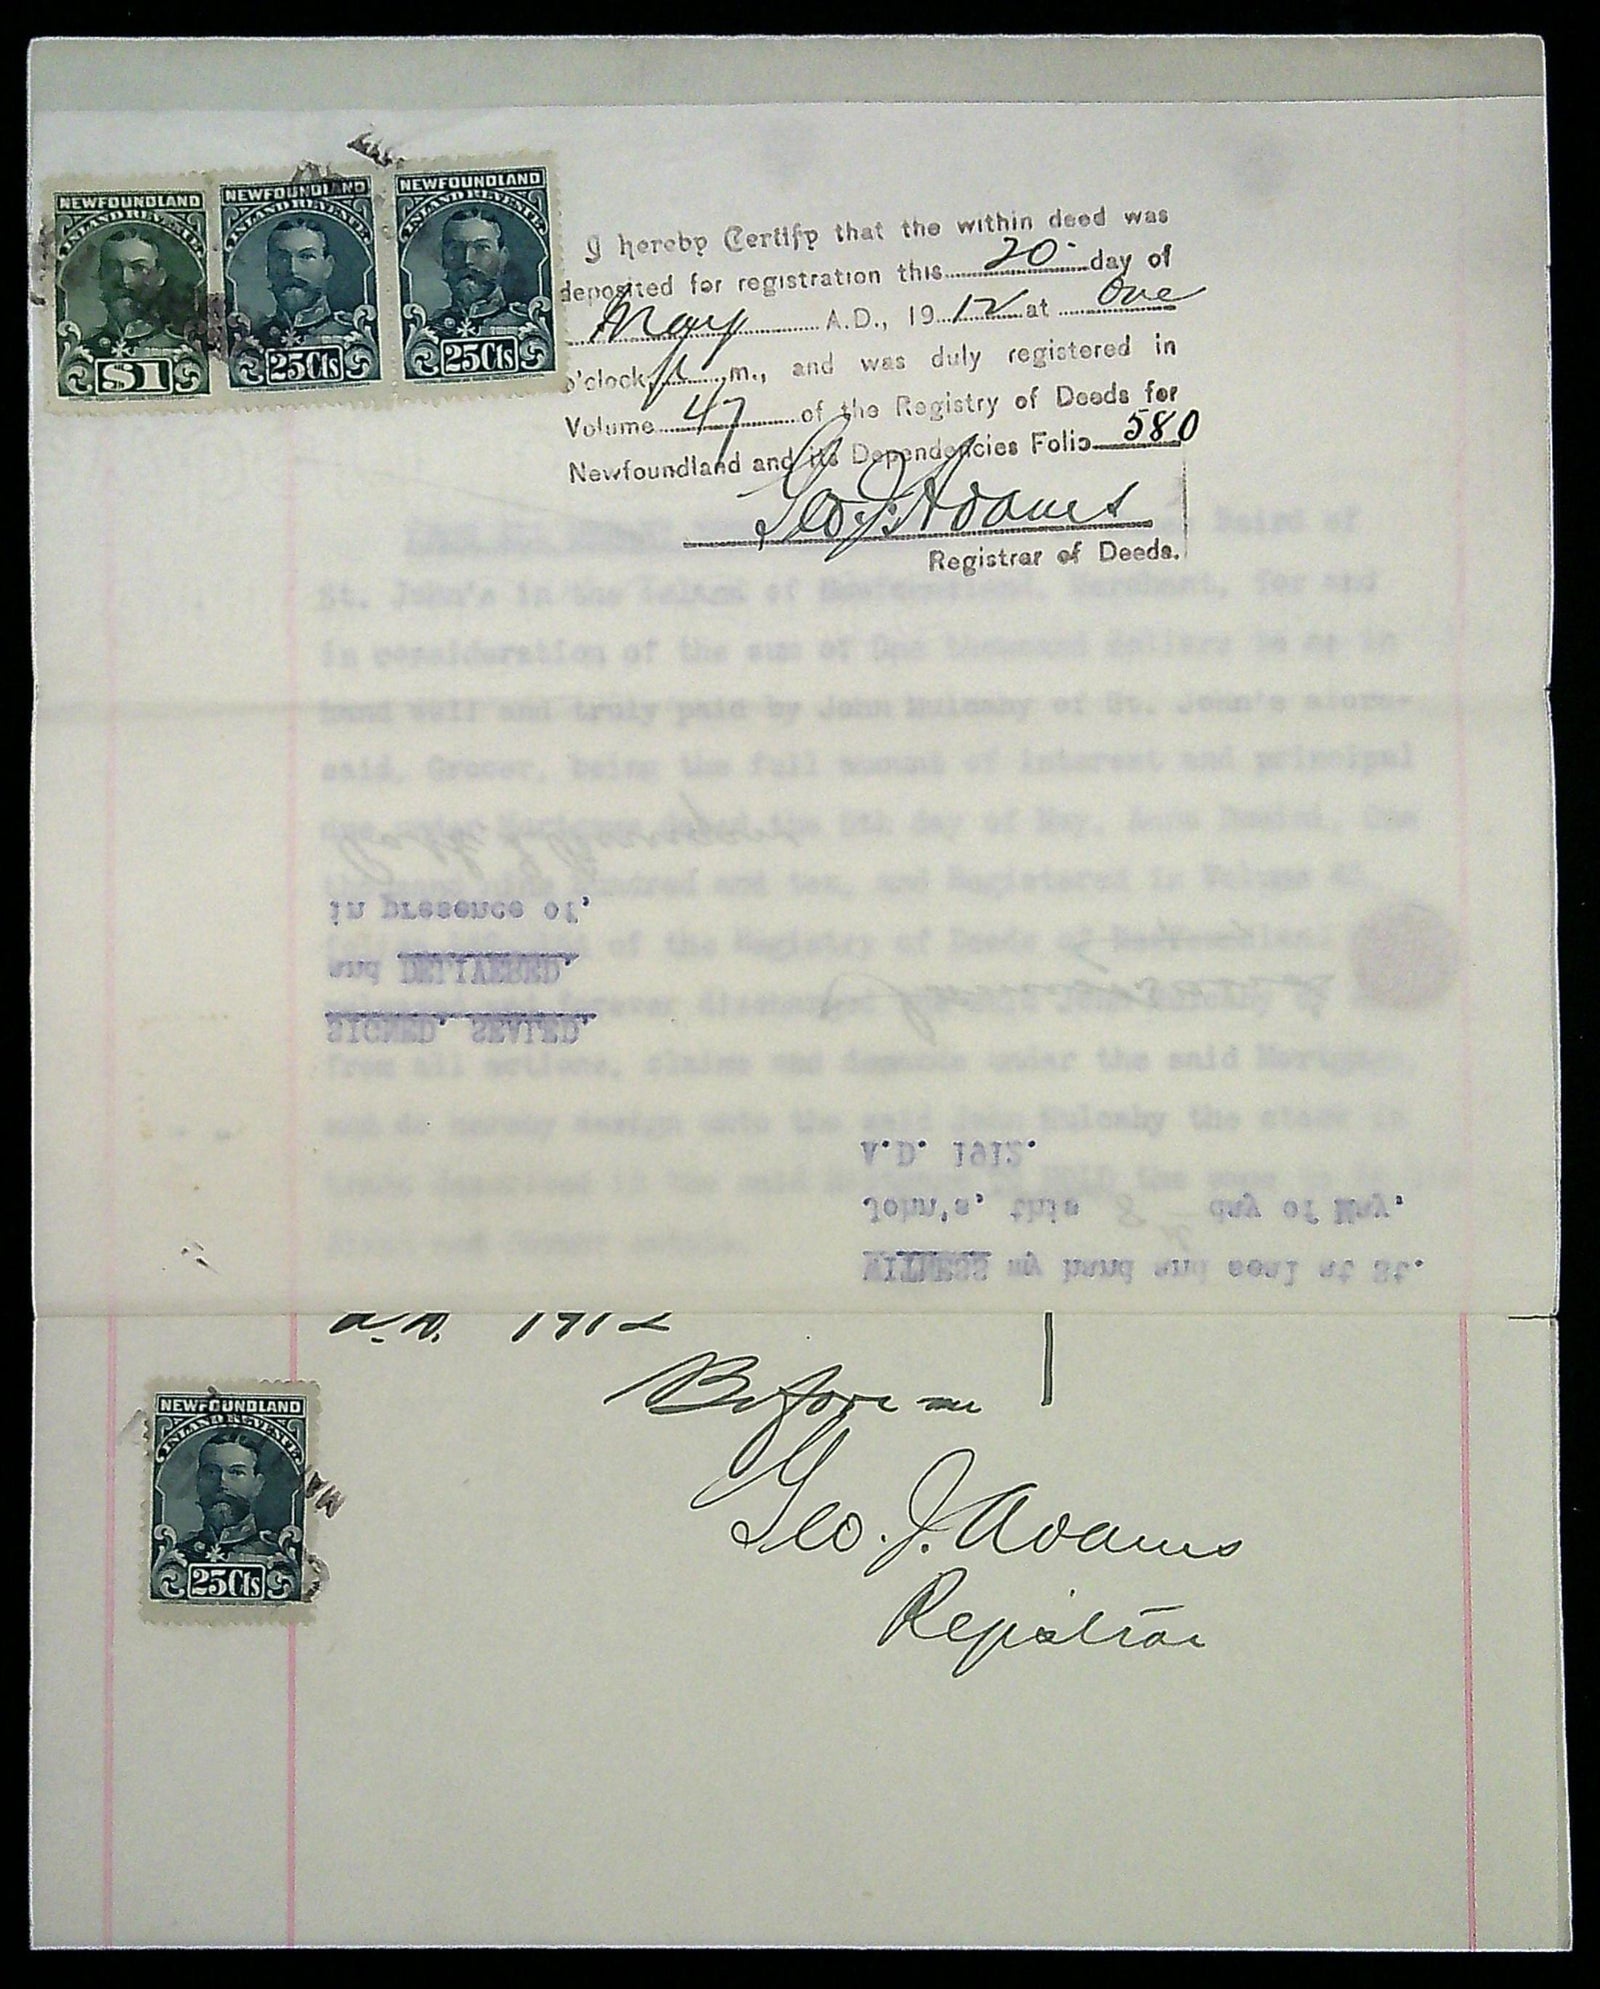 NEWFOUNDLAND
INLAND REVENUE
$1
NEWFOUNDLAND
INLAND REVENUE
25Cts
NEWFOUNDLAND
INLAND REVENUE
25Cts
I hereby Certify that the within deed was
deposited for registration this 20 day of
May A.D., 1912 at One
o'clock p.m., and was duly registered in
Volume 47 of the Registry of Deeds for
Newfoundland and its Dependencies Folio 580
Geo. J. Adams
Registrar of Deeds.
Baird of
St. John's in the island of Newfoundland, Merchant, for and
in consideration of the sum of One thousand dollars to me in
hand well and truly paid by John Mulcahy of St. John's afore-
said, Grocer, being the full amount of interest and principal
due under Mortgage dated the 9th day of May, Anno Domini, One
thousand nine hundred and ten, and Registered in Volume
in presence of,
of the Registry of Deeds of Newfoundland
and DELIVERED
released and forever discharged the said John Mulcahy
SIGNED, SEALED,
from all actions, claims and demands under the said Mortgage,
and do hereby assign unto the said John Mulcahy the stock in
A.D. 1912.
trade described in the said HOLD the same
John's, this 8 day of May,
WITNESS my hand and seal at St.
A.D. 1912
Before me
NEWFOUNDLAND
INLAND REVENUE
25Cts
Geo. J. Adams
Registrar